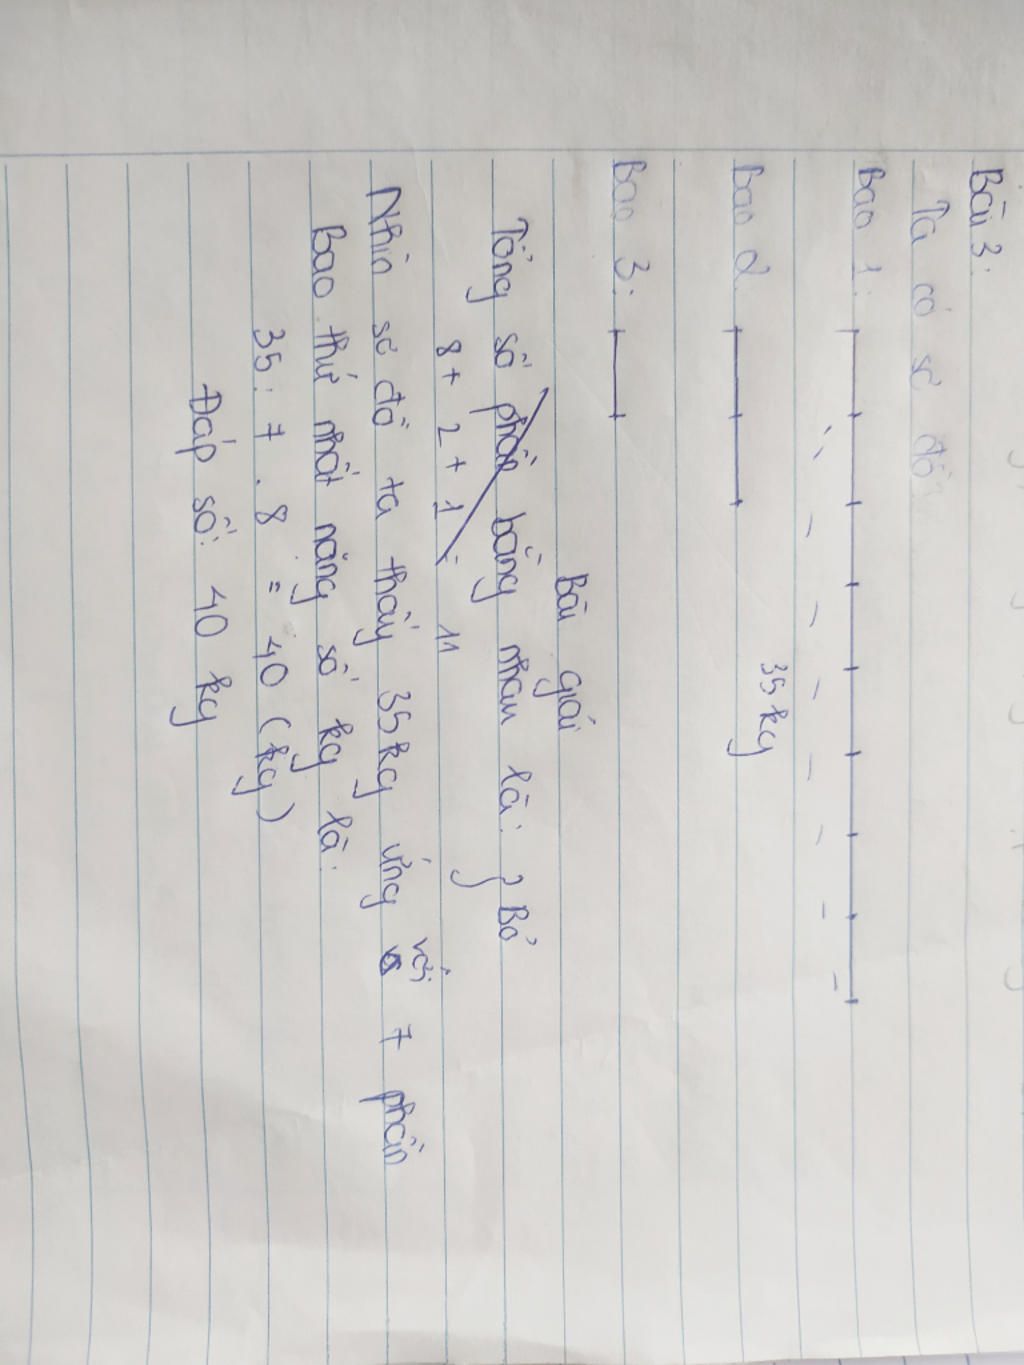 Bài 3:
Ta có sơ đồ:
Bao 1:
35kg
Bao 2:
Bao 3:
Bài giải
Tổng số phần bằng nhau là: } Bỏ
8 + 2 + 1 = 11
Nhìn sơ đồ ta thấy 35kg ứng với 7 phần
Bao thứ nhất nặng số kg là:
35 : 7 . 8 = 40 (kg)
Đáp số: 40 kg